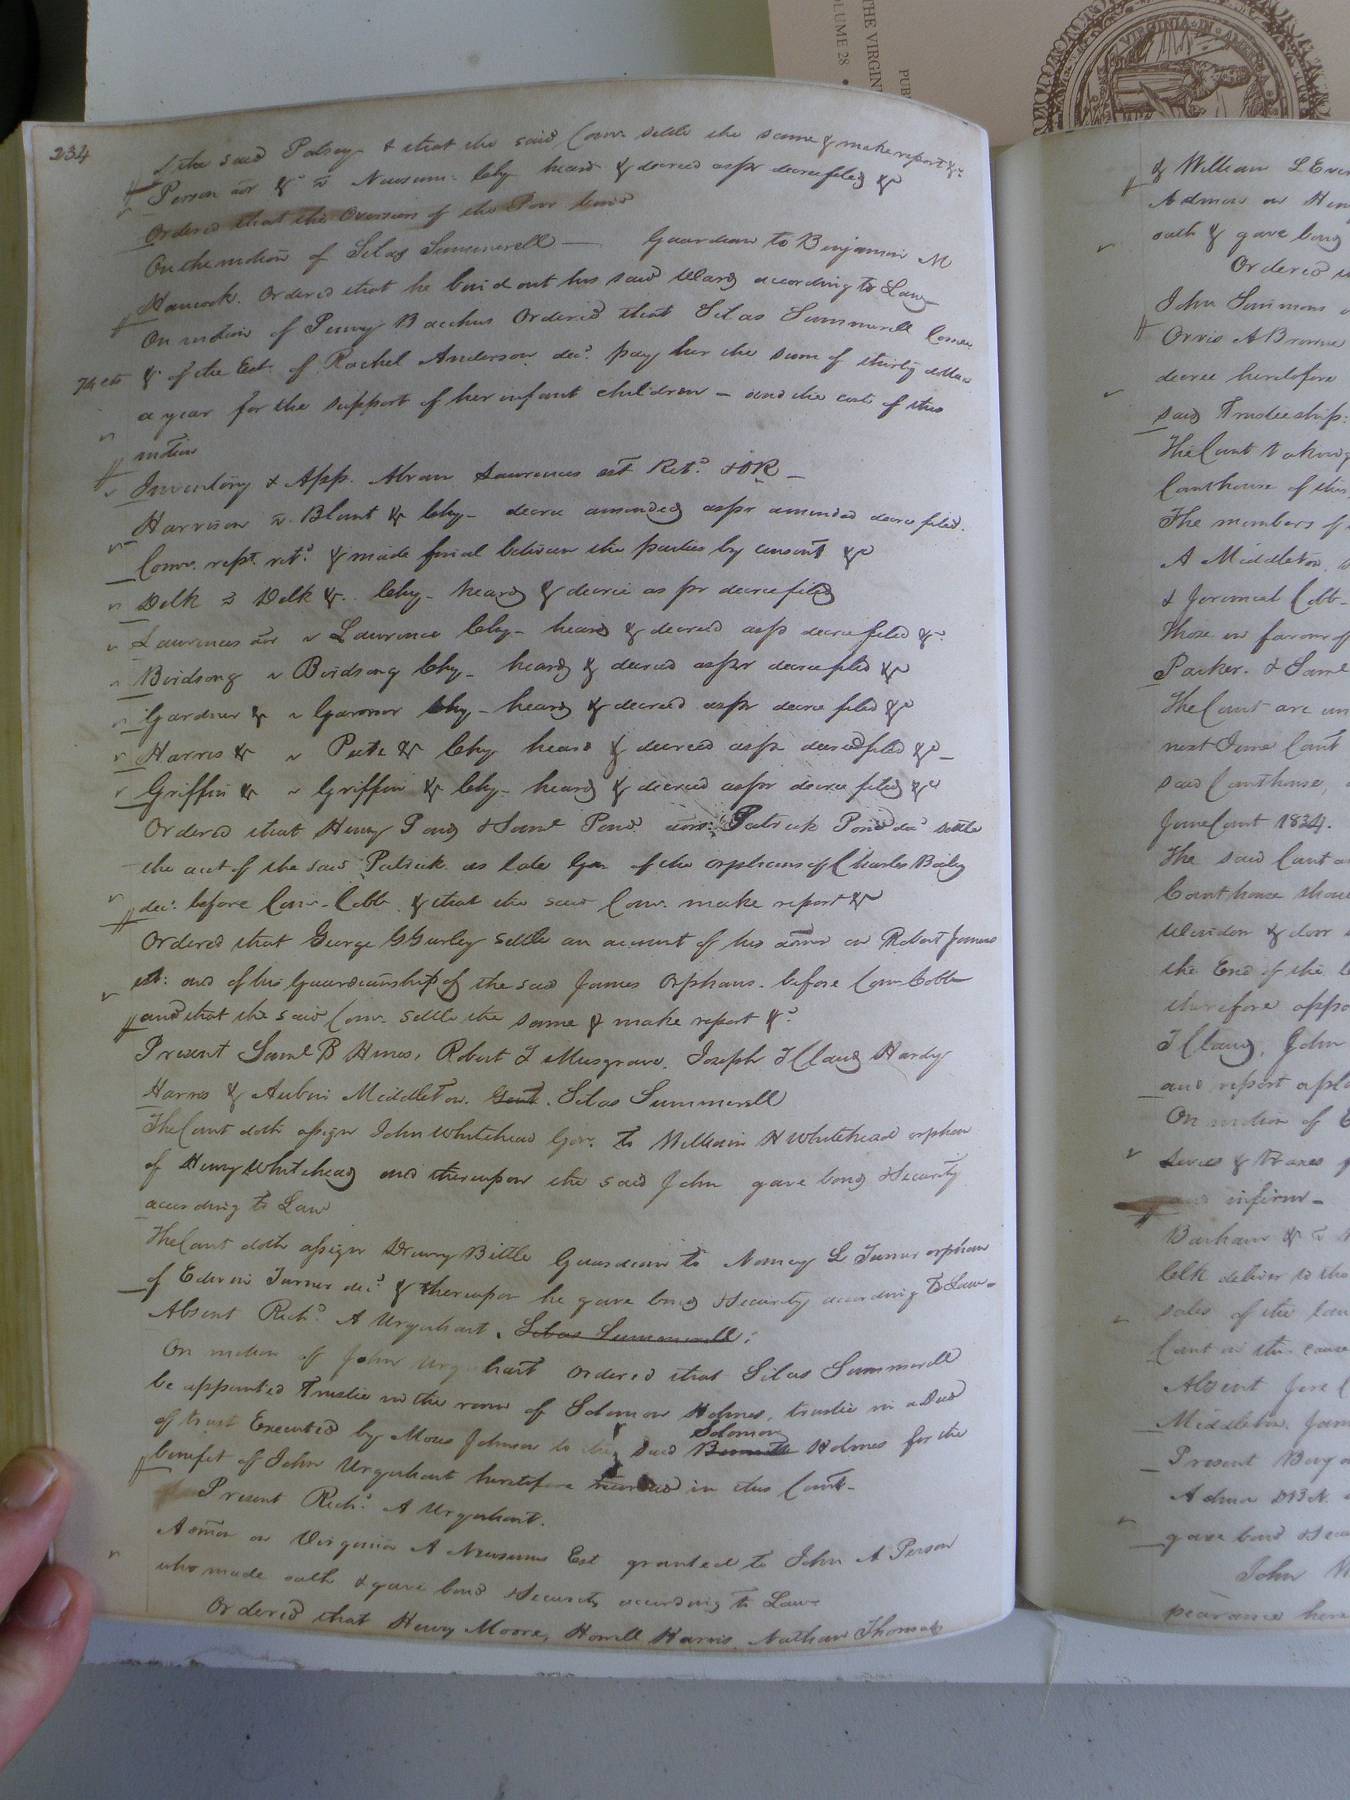 234
& the said Patsey & that the said Comr. settle the same & make report &c.
Person admr &c vs Newsum. Chy heard & decreed as pr decree filed &c
Ordered that the Overseers of the Poor bind
On the motion of Silas Summerell — Guardian to Benjamin M
Hancock. Ordered that he bind out his said Ward according to Law
On motion of Penny Bacchus Ordered that Silas Summerell Comee.
74 cts & of the Est. of Rachel Anderson decd. pay her the sum of thirty dollars
a year for the support of her infant children – and the cost of this
motion
Inventory & App. Abram Lawrences est Retd. & OR –
Harrison vs Blunt &c Chy – decree amended as pr amended decree filed.
Comr. rept. retd. & made final between the parties by consent &c
Delk vs Delk &c. Chy – heard & decree as pr decree filed
Lawrences admr v Lawrence Chy – heard & decreed as pr decree filed &c.
Birdsong v Birdsong Chy – heard & decreed as pr decree filed &c
Gardner &c v Gardner Chy – heard & decreed as pr decree filed &c
Harris &c v Pete &c Chy heard & decreed as pr decree filed &c –
Griffin &c v Griffin &c Chy – heard & decreed as pr decree filed &c
Ordered that Henry Pond & Saml Pond admr. Patrick Pond decd settle
the act of the said Patrick as late Gn of the orphans of Charles Baily
decd. before Comr. Cobb & that the said Comr. make report &c
Ordered that George G Gurley settle an account of his admn on Robert James
est: and of his Guardianship of the said James Orphans. before Comr Cobb
and that the said Comr. settle the same & make report &c.
Present Saml B Hines, Robert T Musgrave, Joseph T Claud Hardy
Harris & Aubin Middleton. Gent. Silas Summerell
The Court doth assign John Whitehead Gdn. to William H Whitehead orphan
of Henry Whitehead and thereupon the said John gave bond & Security
according to Law
The Court doth assign Drewry Bittle Guardian to Nancy L Turner orphan
of Edwin Turner decd. & thereupon he gave bond & Security according to Law –
Absent Richd. A Urquhart. Silas Summerell:
On motion of John Urquhart ordered that Silas Summerell
be appointed Trustee in the room of Solomon Holmes, trustee in a Deed
Solomon
of trust Executed by Moses Johnson to the said Bennett Holmes for the
benefit of John Urquhart heretofore recorded in this Court –
Present Richd. A Urquhart.
Admn on Virginia A Newsums Est granted to John A Person
who made oath & gave bond & Security according to Law
Ordered that Henry Moore, Howell Harris, Nathan Thomas
THE VIRGIN
VOLUME 28 •
PUB
VIRGINIA • IN • AMERICA
& William L Ever
Admor on Hen
oath & gave bond
Ordered
John Simmons
Orris A Browne
decree heretofore
said Trusteeship:
The Court taking
Courthouse of this
The members of
A Middleton,
& Jeremiah Cobb –
Those in favour of
Parker. & Saml
The Court are un
next June Court
said Courthouse,
June Court 1834.
The said Court
Courthouse shou
Window & door
the End of the
therefore appo
T Claud, John
and report a pla
On motion of
levies & Taxes
and infirm –
Barham &c vs
Clk deliver to the
sales of the lan
Court in this cause
Absent Jere
Middleton. Jam
Present Benj
Admn DBN.
gave bond & Secu
John W
pearance here